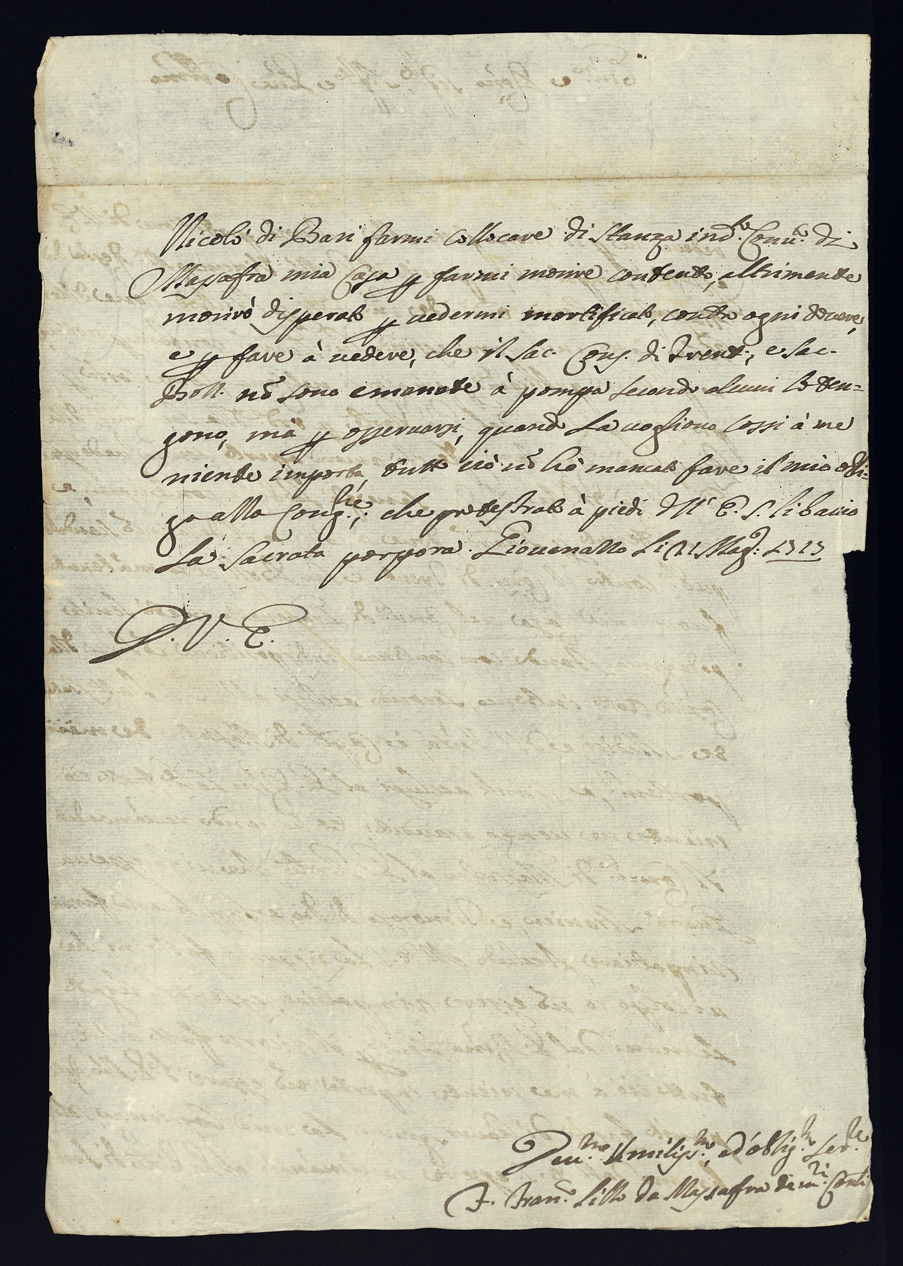 Nicolò di Bari farmi collocare di stanza in d.º Conv.º di
Massafra mia Casa p farmi morire contento, altrimente
morirò disperato p vedermi mortificato, contro ogni dovere,
e p fare à vedere, che il Sac. Conc. di Trent., e Sac.
Boll. nõ sono emanate à pompa secondo alcuni lo ten-
gono, mà p osservarsi, quando la vogliono cossì à me
niente importa, tutto ciò nõ hò mancato fare il mio obli-
go alla Cong.ne; che protestrato à piedi dell' E. S. li bacio
la sacrata porpora. Giovenazzo li 21 Mag.º 1713
D. V. E.
Dev.mo Umiliss.mo, ed oblig.mo Ser.re
F. Fran.º Lillo da Massafra de